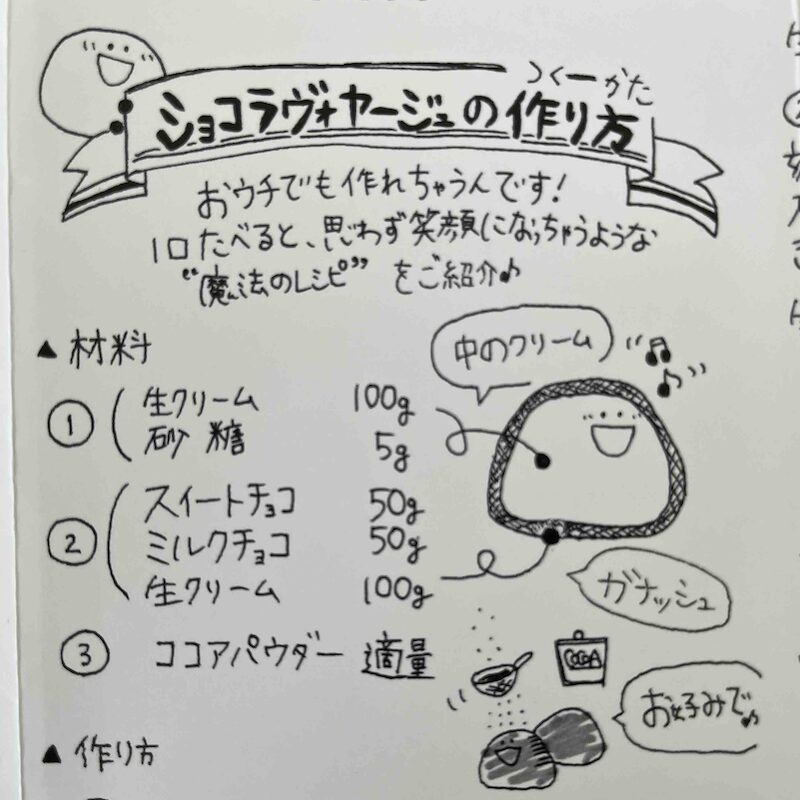 つくーかた
ショコラヴォヤージュの作り方
おウチでも作れちゃうんです!
1口たべると、思わず笑顔になっちゃうような
"魔法のレシピ" をご紹介♪
▲ 材料
中のクリーム
① 生クリーム 100g
砂糖 5g
② スイートチョコ 50g
ミルクチョコ 50g
生クリーム 100g
ガナッシュ
③ ココアパウダー 適量
COCOA
お好みで♪
▲ 作り方